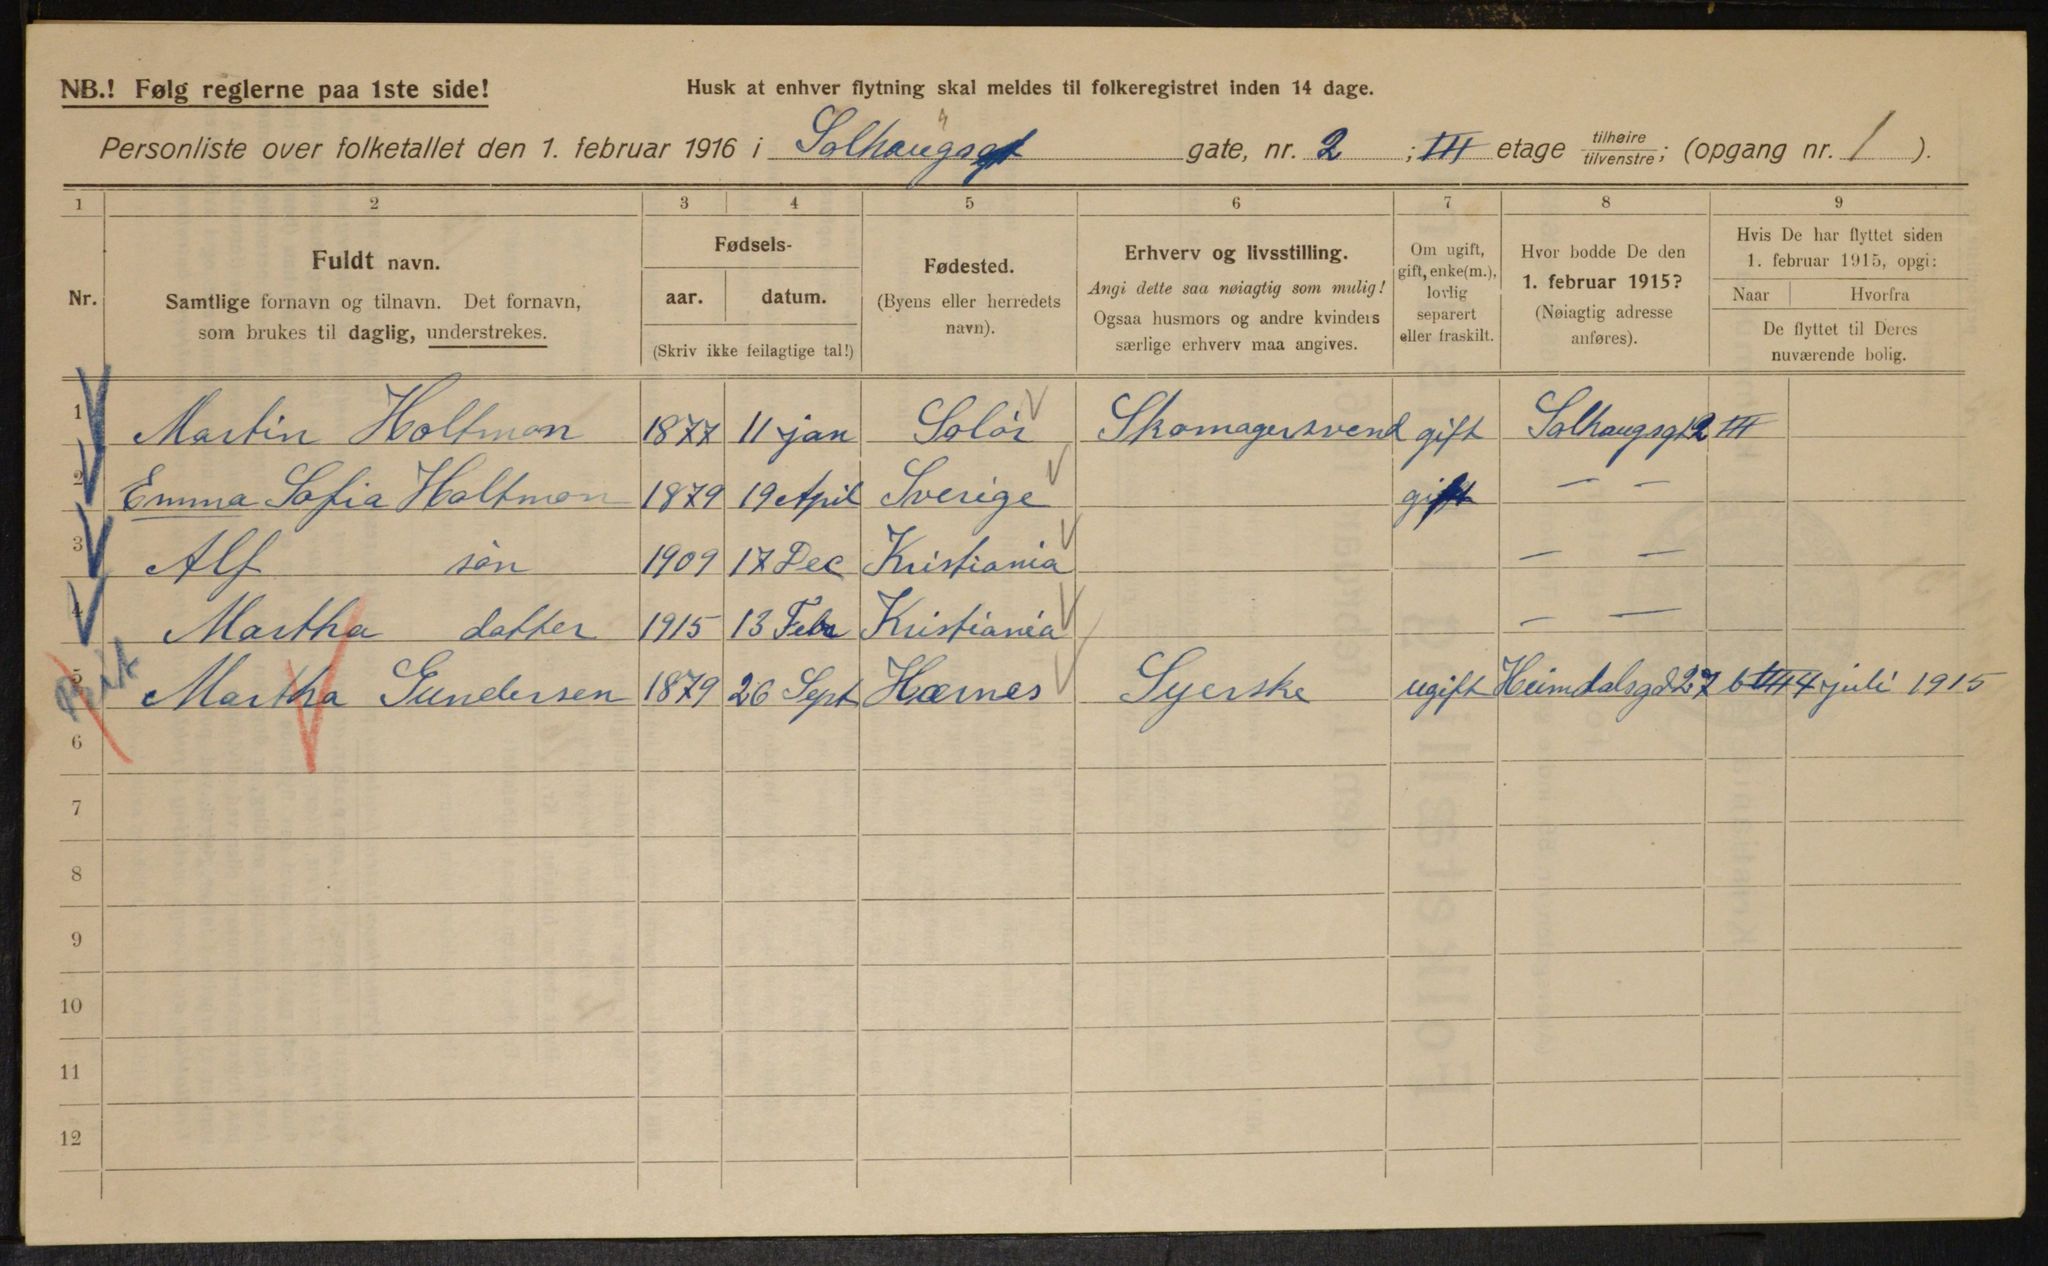 NB.! Følg reglerne paa 1ste side!
Husk at enhver flytning skal meldes til folkeregistret inden 14 dage.
Personliste over folketallet den 1. februar 1916 i Solhaugsgt gate, nr. 2 ; III etage tilhøire/tilvenstre; (opgang nr. 1 ).
1 2 3 4 5 6 7 8 9
Nr.
Fuldt navn.
Samtlige fornavn og tilnavn. Det fornavn,
som brukes til daglig, understrekes.
Fødsels-
aar. datum.
(Skriv ikke feilagtige tal!)
Fødested.
(Byens eller herredets
navn).
Erhverv og livsstilling.
Angi dette saa nøiagtig som mulig!
Ogsaa husmors og andre kvinders
særlige erhverv maa angives.
Om ugift,
gift, enke(m.),
lovlig
separert
eller fraskilt.
Hvor bodde De den
1. februar 1915?
(Nøiagtig adresse
anføres).
Hvis De har flyttet siden
1. februar 1915, opgi:
Naar Hvorfra
De flyttet til Deres
nuværende bolig.
1 Martin Holtmon 1877 11 jan Solör Skomagersvend gift Solhaugsgt 2 III
2 Emma Sofia Holtmon 1879 19 April Sverige gift — —
3 Alf sön 1909 17 Dec Kristiania — —
4 Martha datter 1915 13 Febr Kristiania — —
5 Martha Gundersen 1879 26 Sept Hærnes Syerske ugift Heimdalsgd 27 b III 4 juli 1915
6
7
8
9
10
11
12